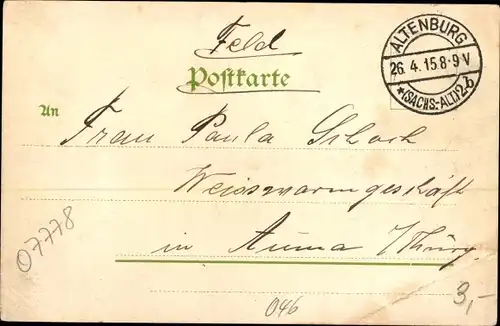 Feld
Postkarte
ALTENBURG
26.4.15.8-9V
*(SACHS.-ALT.)2b
An
Frau Paula Schoch
Weisswarengeschäft
in Auma i/Thürg.
07778
046
3,-